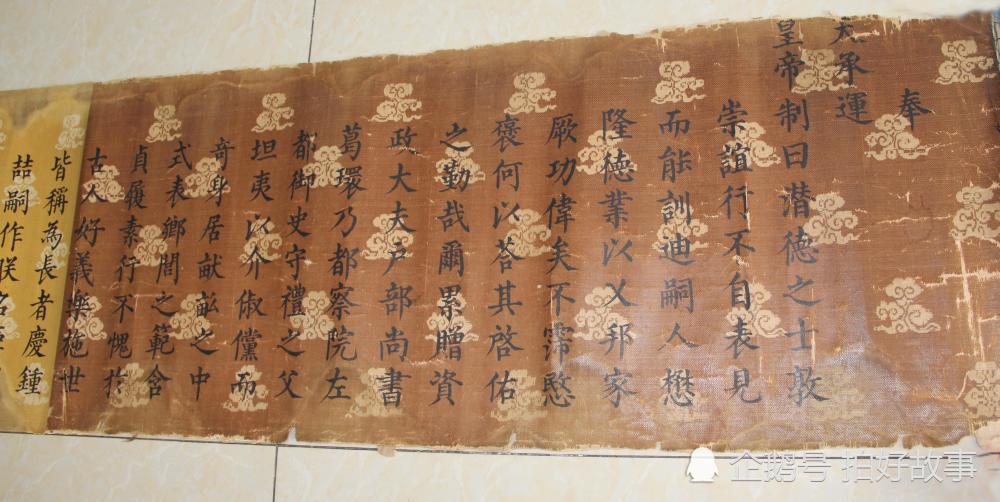 奉
天承運
皇帝制曰潜德之士敦
崇誼行不自表見
而能訓迪嗣人懋
隆德業以乂邦家
厥功偉矣不霈愍
褒何以荅其啓佑
之勤哉爾累贈資
政大夫户部尚書
葛環乃都察院左
都御史守禮之父
坦夷以介俶儻而
奇身居畎畝之中
式表鄉閭之範含
貞履素行不愧於
古人好義樂施世
皆稱為長者慶鍾
喆嗣作朕名
企鹅号 拍好故事